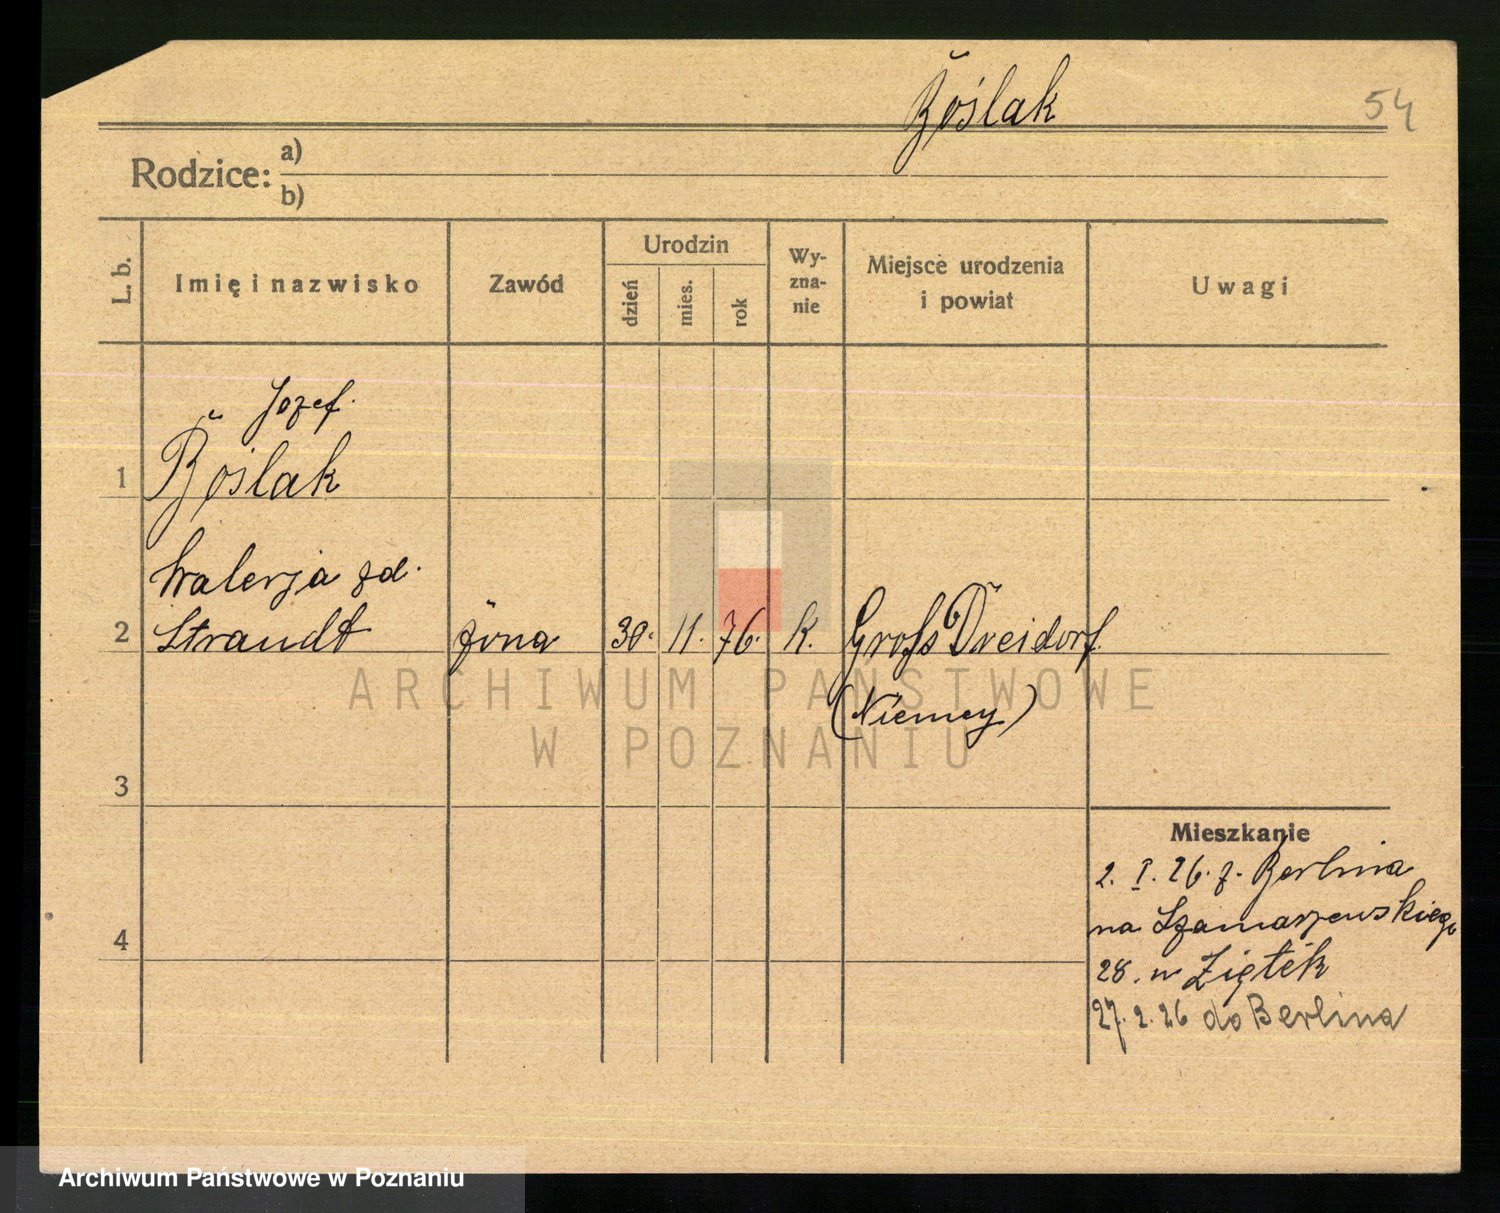 Žoślak
54
Rodzice: a)
b)
L. b.
Imię i nazwisko
Zawód
Urodzin
dzień
mies.
rok
Wy-
zna-
nie
Miejsce urodzenia
i powiat
Uwagi
Jozef.
1 Žoślak
Walerja zd.
2 Strandt żona 30. 11. 76. k. Groſs Dreidorf
(Niemcy)
3
4
Mieszkanie
2. I. 26. z. Berlina
na Szamarzewskiego
28. w Ziętek
27. 2. 26 do Berlina
ARCHIWUM PAŃSTWOWE
W POZNANIU
Archiwum Państwowe w Poznaniu